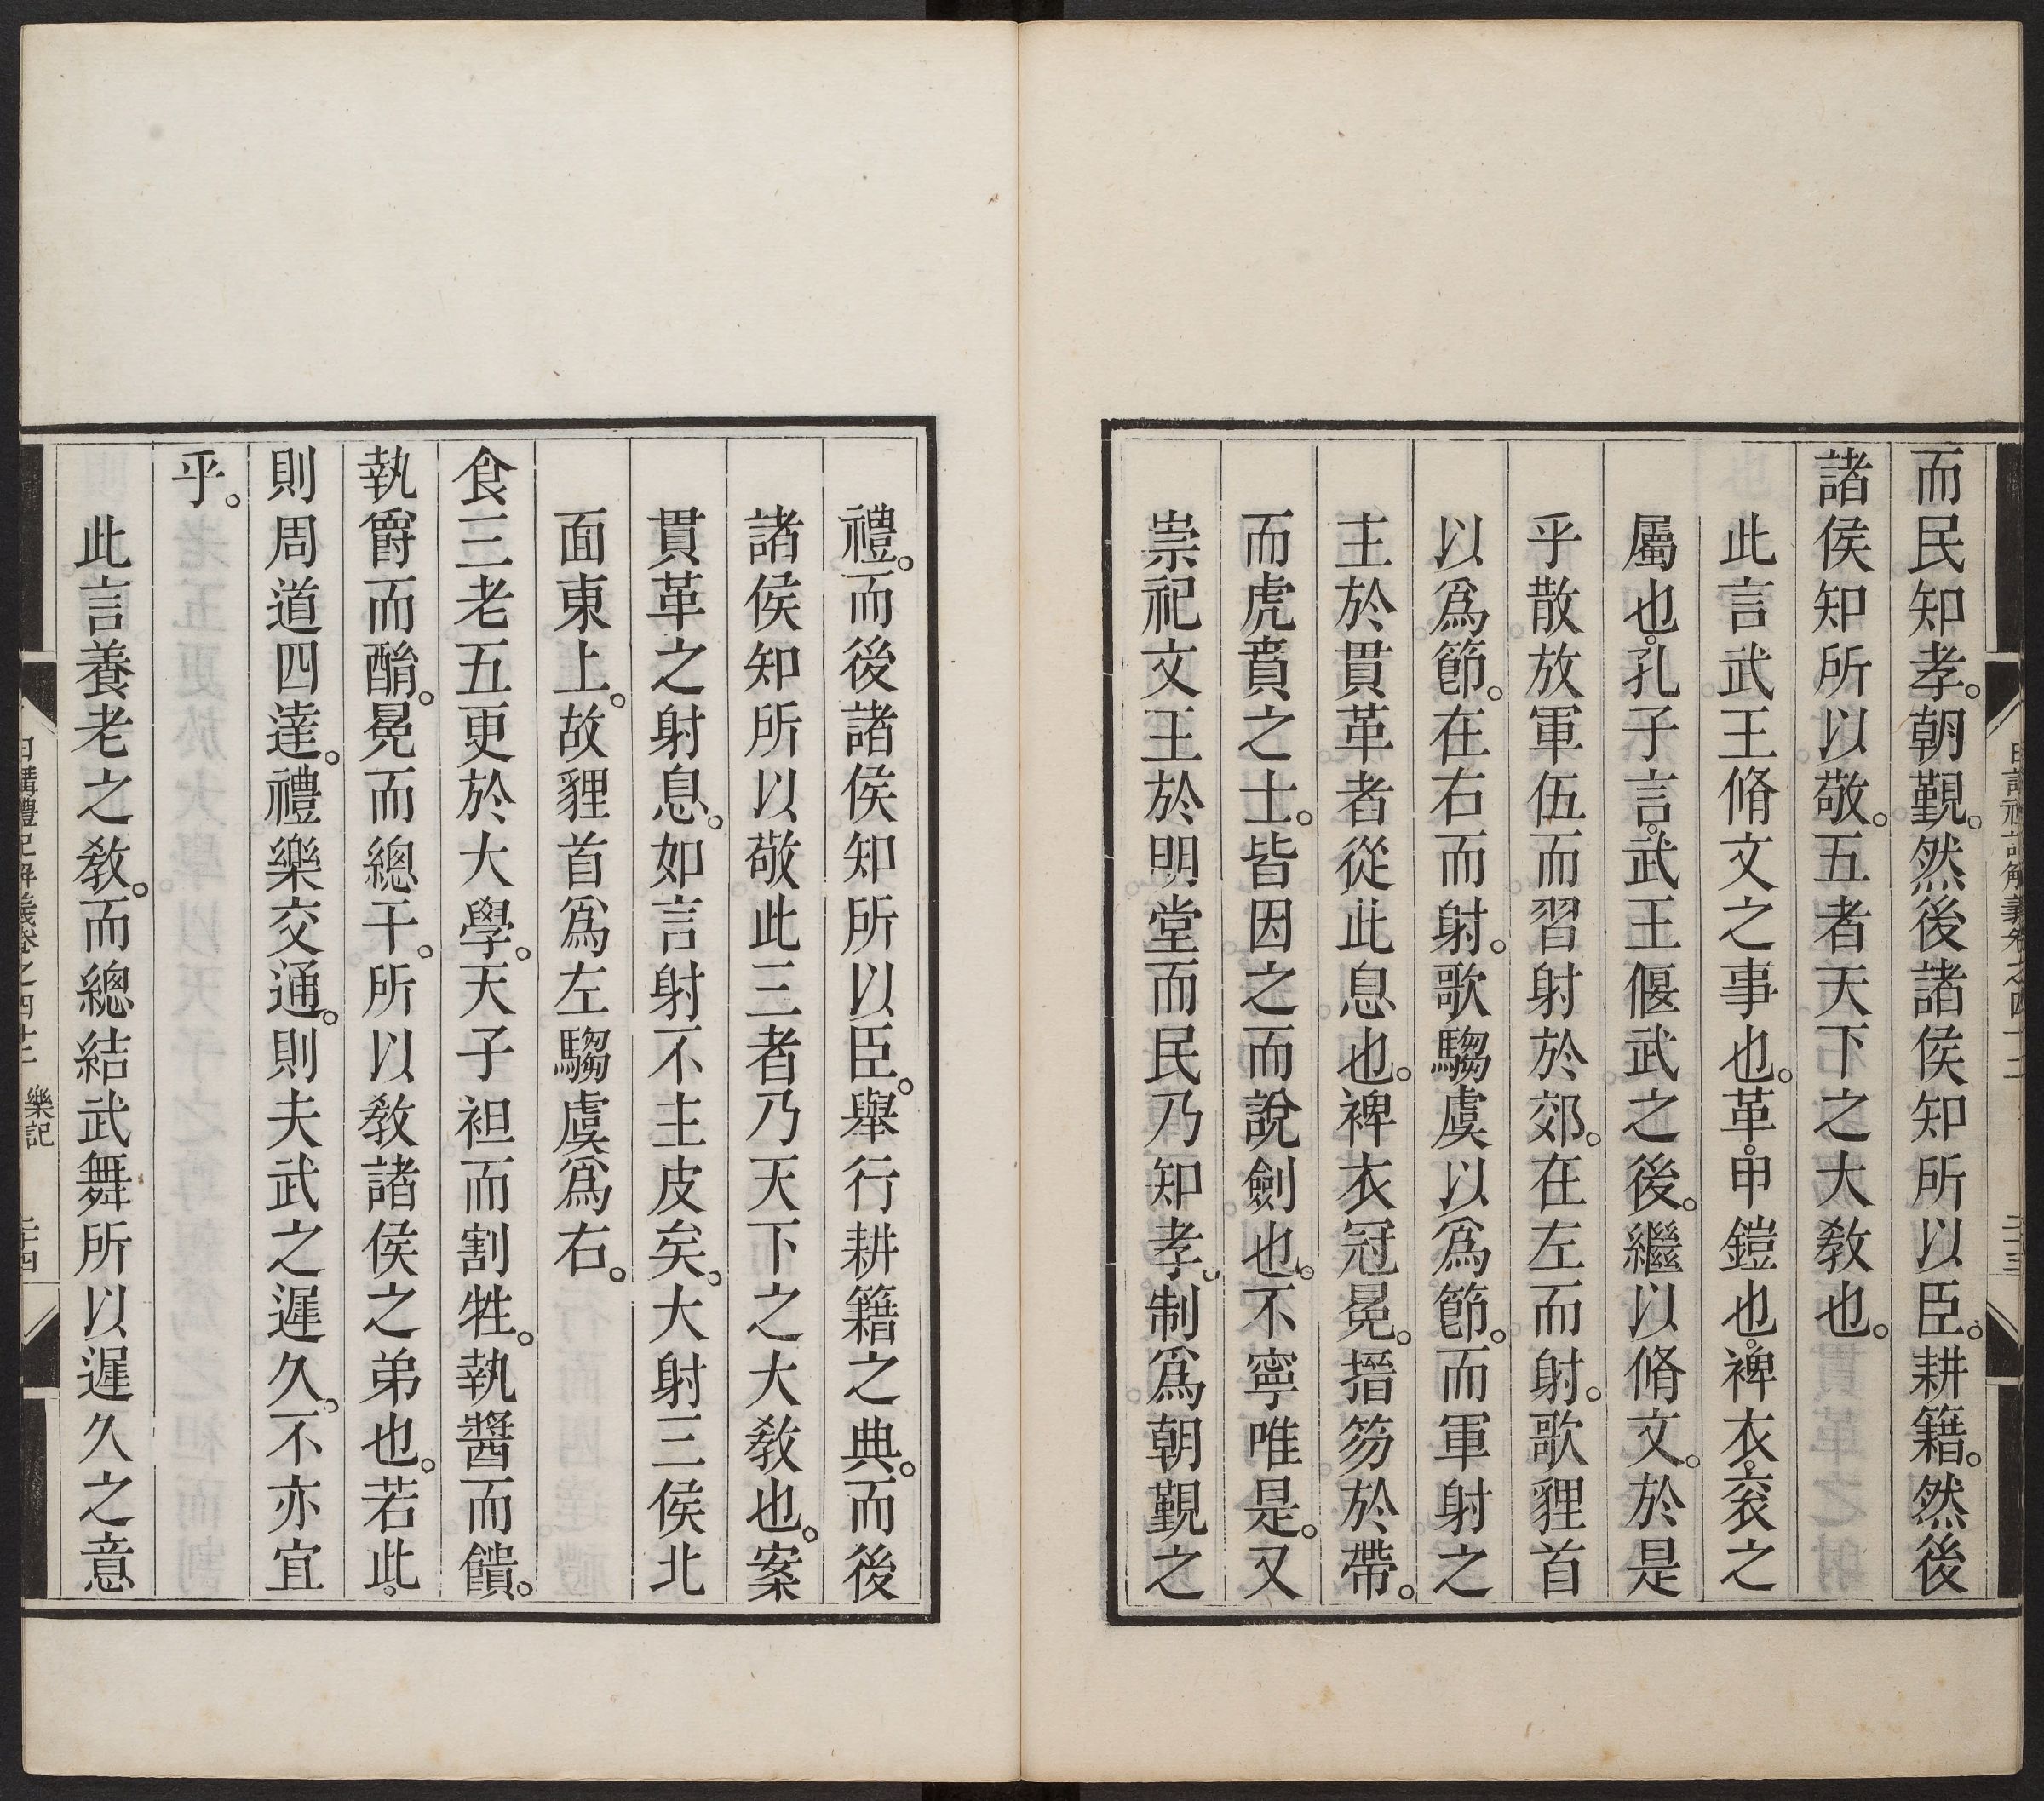 而民知孝。朝覲。然後諸侯知所以臣。耕籍。然後
諸侯知所以敬。五者天下之大敎也。
此言武王脩文之事也。革。甲鎧也。裨衣。衮之
屬也。孔子言。武王偃武之後。繼以脩文。於是
乎散放軍伍而習射於郊。在左而射。歌貍首
以爲節。在右而射。歌騶虞以爲節。而軍射之
主於貫革者從此息也。裨衣冠冕。搢笏於帶。
而虎賁之士。皆因之而說劍也。不寧唯是。又
崇祀文王於明堂而民乃知孝。制爲朝覲之
禮。而後諸侯知所以臣。舉行耕籍之典。而後
諸侯知所以敬此三者乃天下之大敎也。案
貫革之射息。如言射不主皮矣。大射三侯北
面東上。故貍首爲左騶虞爲右。
食三老五更於大學。天子袒而割牲。執醬而饋。
執爵而酳。冕而總干。所以敎諸侯之弟也。若此。
則周道四達。禮樂交通。則夫武之遲久。不亦宜
乎。
此言養老之敎。而總結武舞所以遲久之意
日講禮記解義卷之四十二 樂記 二十四